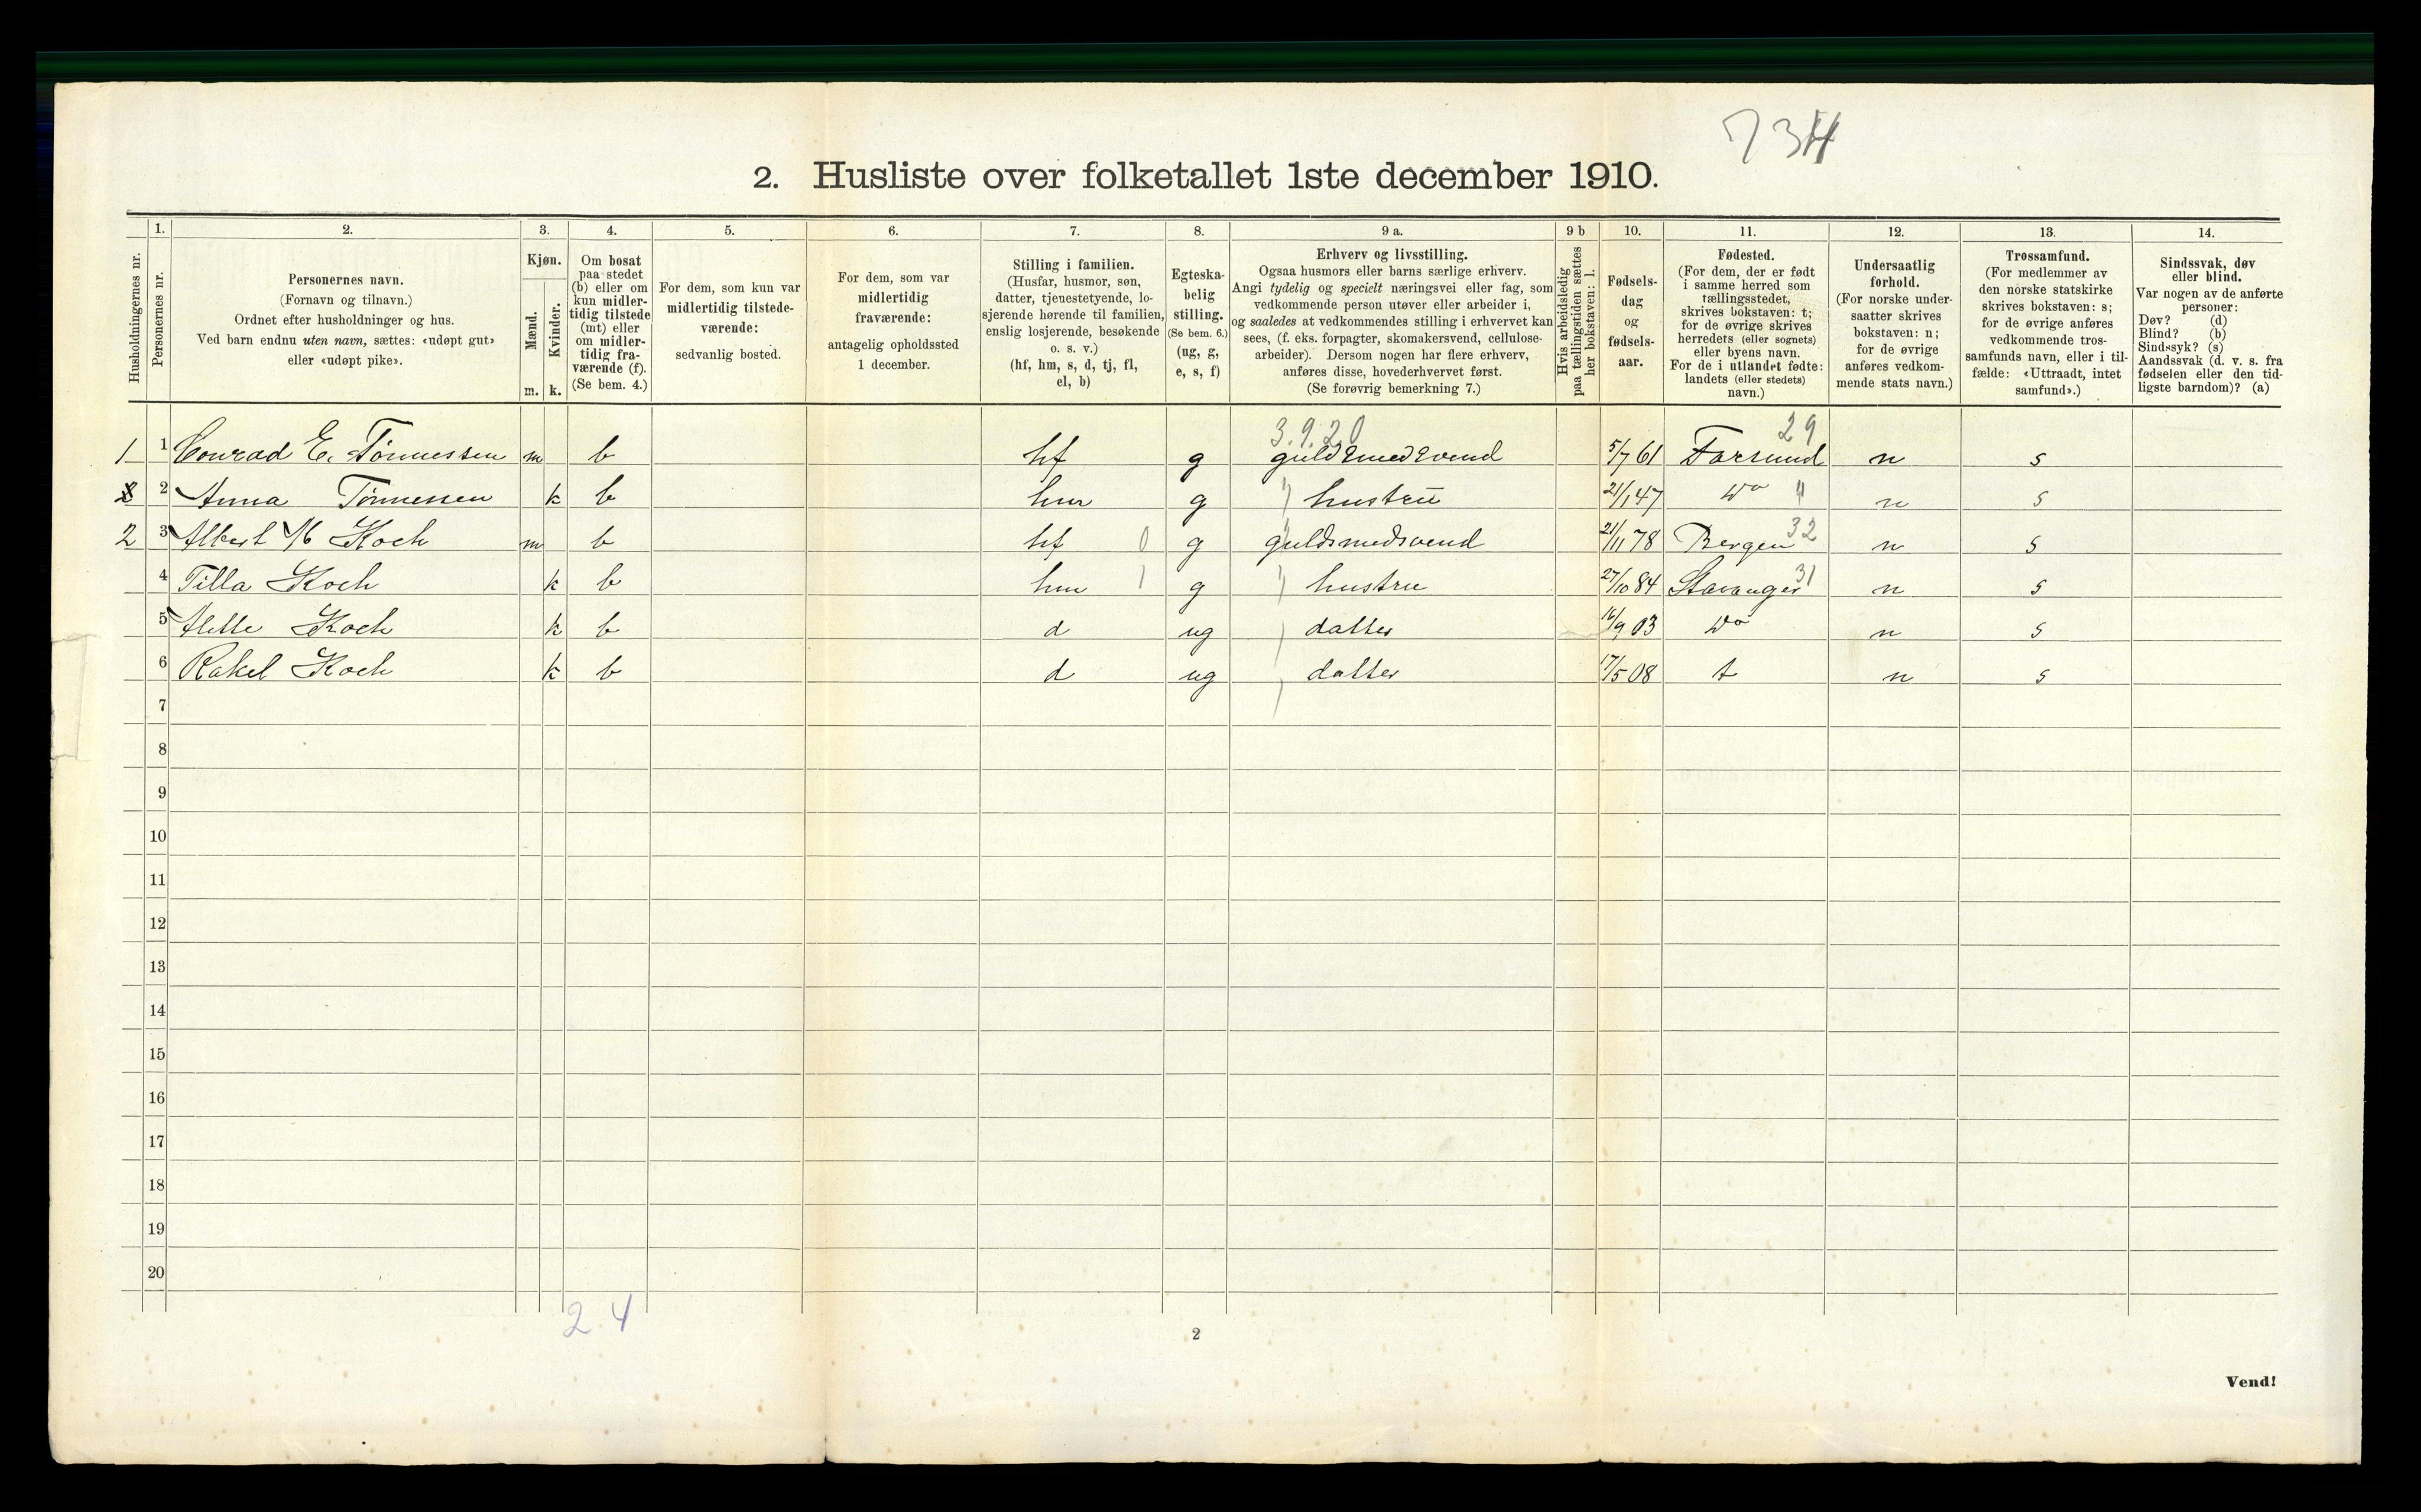 734
2. Husliste over folketallet 1ste december 1910.
Husholdningernes nr.
1.
Personernes nr.
2.
Personernes navn.
(Fornavn og tilnavn.)
Ordnet efter husholdninger og hus.
Ved barn endnu uten navn, sættes: «udøpt gut»
eller «udøpt pike».
3.
Kjøn.
Mænd.
Kvinder.
m. k.
4.
Om bosat
paa stedet
(b) eller om
kun midler-
tidig tilstede
(mt) eller
om midler-
tidig fra-
værende (f).
(Se bem. 4.)
5.
For dem, som kun var
midlertidig tilstede-
værende:
sedvanlig bosted.
6.
For dem, som var
midlertidig
fraværende:
antagelig opholdssted
1 december.
7.
Stilling i familien.
(Husfar, husmor, søn,
datter, tjenestetyende, lo-
sjerende hørende til familien,
enslig losjerende, besøkende
o. s. v.)
(hf, hm, s, d, tj, fl,
el, b)
8.
Egteska-
belig
stilling.
(Se bem. 6.)
(ug, g,
e, s, f)
9 a.
Erhverv og livsstilling.
Ogsaa husmors eller barns særlige erhverv.
Angi tydelig og specielt næringsvei eller fag, som
vedkommende person utøver eller arbeider i,
og saaledes at vedkommendes stilling i erhvervet kan
sees, (f. eks. forpagter, skomakersvend, cellulose-
arbeider). Dersom nogen har flere erhverv,
anføres disse, hovederhvervet først.
(Se forøvrig bemerkning 7.)
9 b
Hvis arbeidsledig
paa tællingstiden sættes
her bokstaven: l.
10.
Fødsels-
dag
og
fødsels-
aar.
11.
Fødested.
(For dem, der er født
i samme herred som
tællingsstedet,
skrives bokstaven: t;
for de øvrige skrives
herredets (eller sognets)
eller byens navn.
For de i utlandet fødte:
landets (eller stedets)
navn.)
12.
Undersaatlig
forhold.
(For norske under-
saatter skrives
bokstaven: n;
for de øvrige
anføres vedkom-
mende stats navn.)
13.
Trossamfund.
(For medlemmer av
den norske statskirke
skrives bokstaven: s;
for de øvrige anføres
vedkommende tros-
samfunds navn, eller i til-
fælde: «Uttraadt, intet
samfund».)
14.
Sindssvak, døv
eller blind.
Var nogen av de anførte
personer:
Døv? (d)
Blind? (b)
Sindssyk? (s)
Aandssvak (d. v. s. fra
fødselen eller den tid-
ligste barndom)? (a)
3.9.20 29
1 1 Conrad E. Tönnessen m b hf g guldsmedsvend 5/7 61 Farsund n s
2 Anna Tönnessen k b hm g " hustru 21/1 47 do " n s
2 3 Albert M Koch m b hf 0 g guldsmedsvend 21/11 78 Bergen 32 n s
4 Tilla Koch k b hm 1 g " hustru 27/10 84 Stavanger 31 n s
5 Koch k b d ug datter 16/9 03 do n s
6 Rakel Koch k b d ug datter 17/5 08 t n s
7
8
9
10
11
12
13
14
15
16
17
18
19
20
2 4
2
Vend!